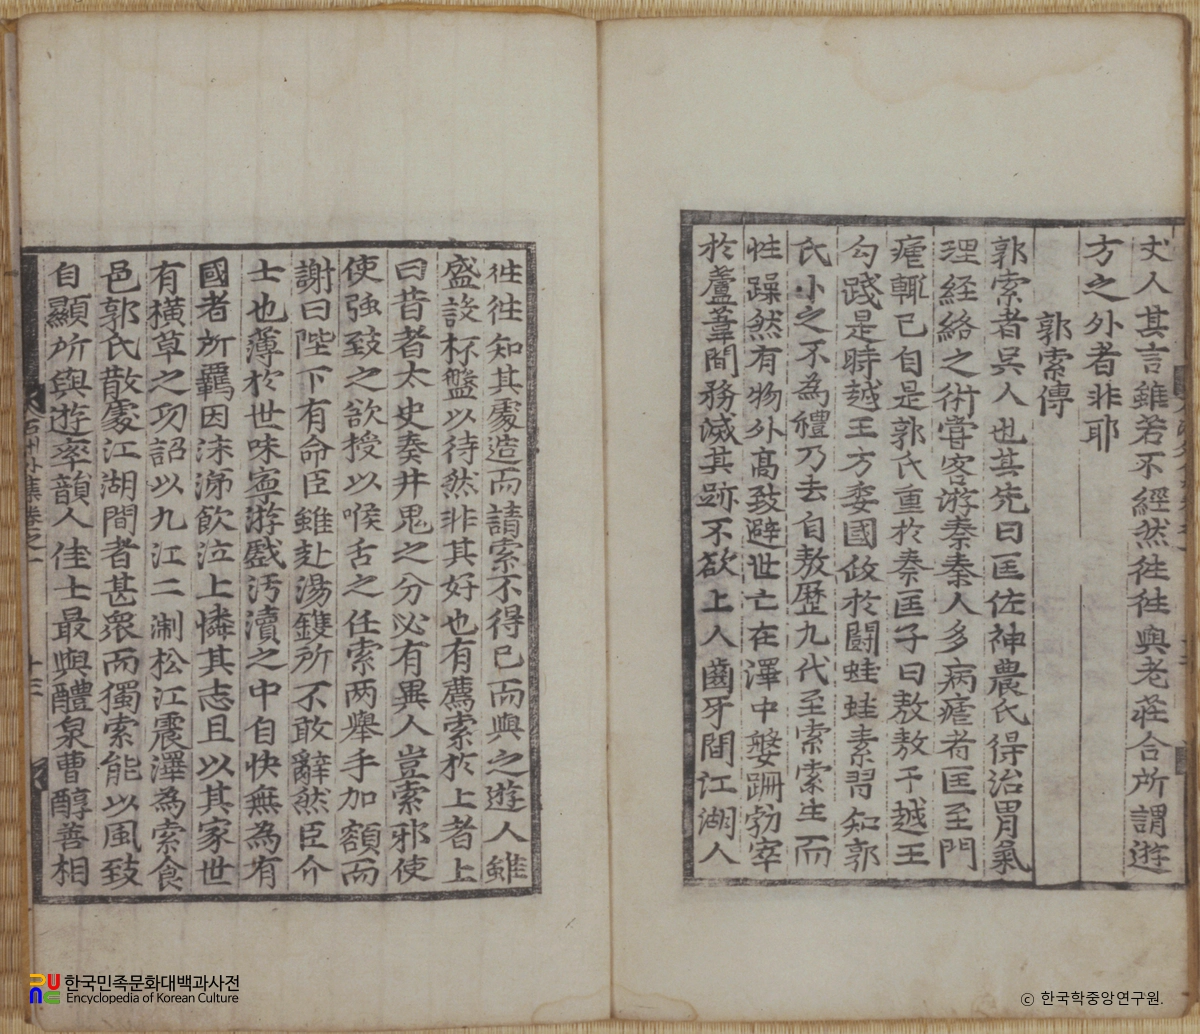 犬人其言雖若不經然徃徃與老莊合所謂遊
方之外者非耶
郭索傳
郭索者吳人也其先曰匡佐神農氏得治胃氣
理經絡之術嘗客游秦秦人多病瘧者匡至門
瘧輒已自是郭氏重於秦匡子曰敖敖于越王
勾踐是時越王方委國政於鬪蛙蛙素習知郭
氏小之不為禮乃去自敖歷九代至索索生而
性躁然有物外高致避世亡在澤中媻跚勃窣
於蘆葦間務滅其跡不欲上人齒牙間江湖人
徃徃知其處造而請索不得已而與之遊人雖
盛設杯盤以待然非其好也有薦索於上者上
曰昔者太史奏井鬼之分必有異人豈索邪使
使強致之欲授以喉舌之任索两舉手加額而
謝曰陛下有命臣雖赴湯鑊所不敢辭然臣介
士也薄於世味寧游戲汚瀆之中自快無為有
國者所羈因沫涕飲泣上憐其志且以其家世
有橫草之功詔以九江二淛松江震澤為索食
邑郭氏散處江湖間者甚衆而獨索能以風致
自顯所與遊率韻人佳士最與醴泉曹醇善相
石州外集卷之一
十二
한국민족문화대백과사전
Encyclopedia of Korean Culture
© 한국학중앙연구원.